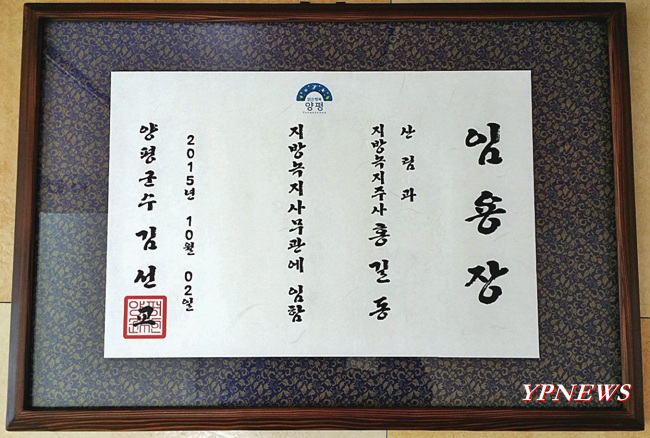 임용장
산림과
지방녹지주사 홍길동
지방녹지사무관에 임함
2015년 10월 02일
양평군수 김선교
양평
YPNEWS